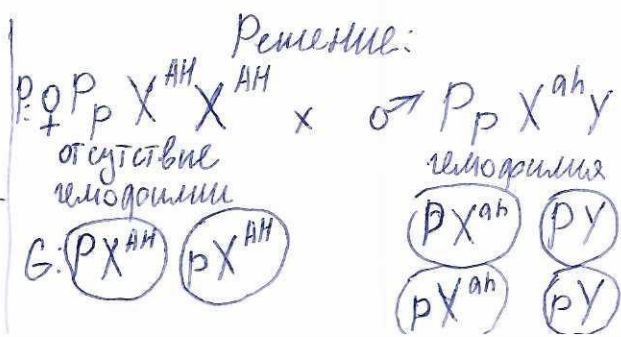 Решение:
P: ♀ Pp X^AH X^AH x ♂ Pp X^ah Y
отсутствие гемофилия
гемофилии
G: PX^AH pX^AH PX^ah PY
pX^ah pY